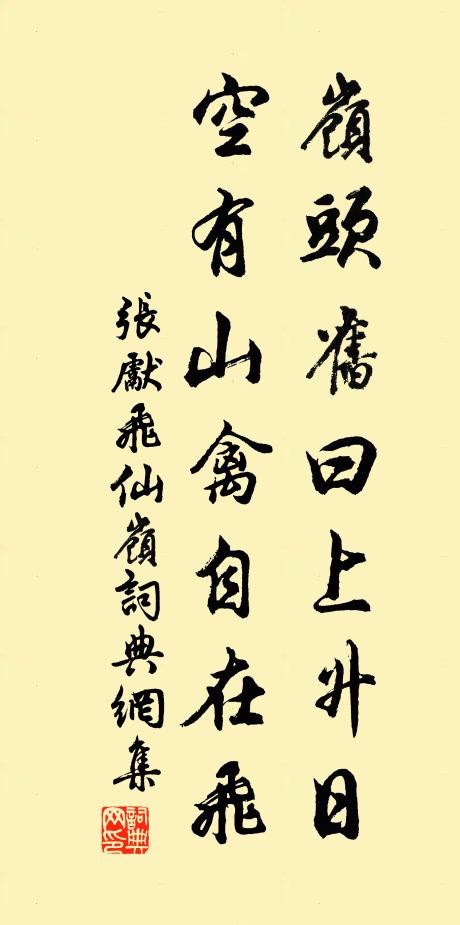 嶺頭舊曰上升日
空有山禽自在飛
張獻飛仙嶺詞典網集
詞典网印